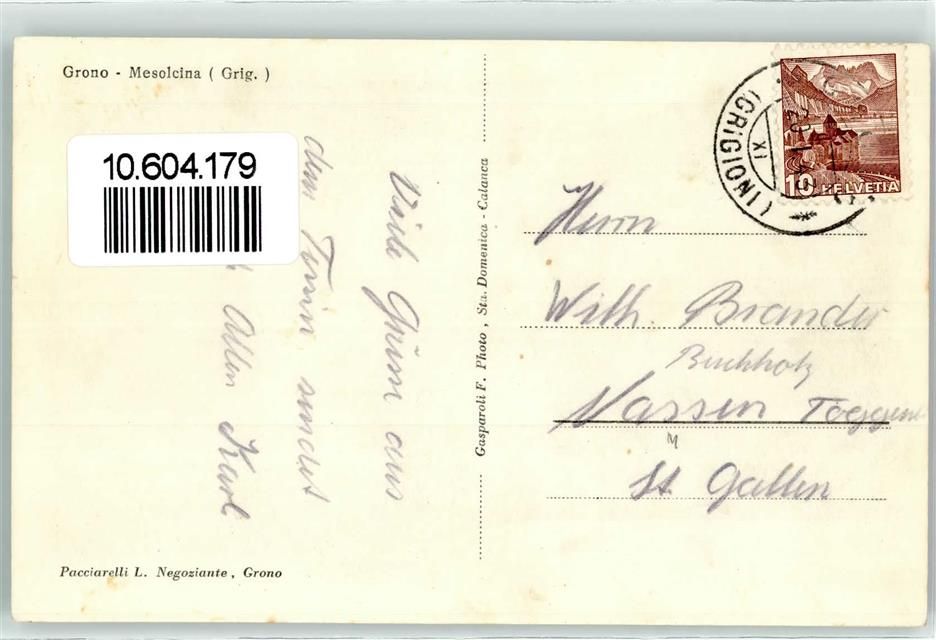 Grono - Mesolcina ( Grig. )
10.604.179
Viele Grüsse aus
dem Tessin sendet
Allen Karl
Pacciarelli L. Negoziante , Grono
Gasparoli F. Photo , Sta. Domenica - Calanca
(GRIGIONI)
XI
10 HELVETIA
Herrn
Wilh. Brander
Buchholz
Nassen Toggen
M
St Gallen